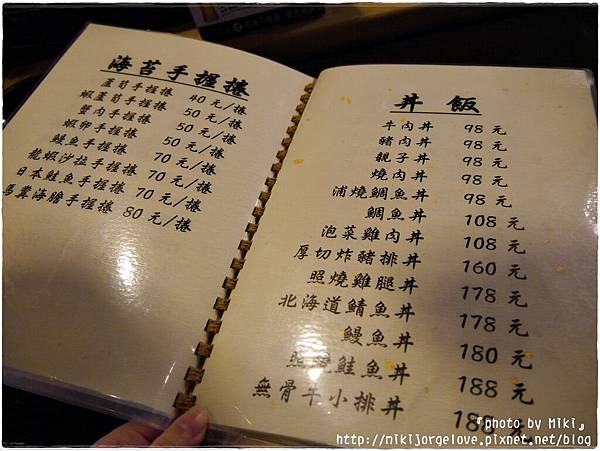 海苔手握捲
蘆筍手握捲 40元/捲
蝦蘆筍手握捲 50元/捲
蟹肉手握捲 50元/捲
蝦卵手握捲 50元/捲
鰻魚手握捲 70元/捲
龍蝦沙拉手握捲 70元/捲
日本鮭魚手握捲 70元/捲
馬糞海膽手握捲 80元/捲
丼飯
牛肉丼 98元
豬肉丼 98元
親子丼 98元
燒肉丼 98元
浦燒鯛魚丼 98元
鯛魚丼 108元
泡菜雞肉丼 108元
厚切炸豬排丼 160元
照燒雞腿丼 178元
北海道鯖魚丼 178元
鰻魚丼 180元
照燒鮭魚丼 188元
無骨牛小排丼 188元
「photo by Miki」
http://mikijorgelove.pixnet.net/blog